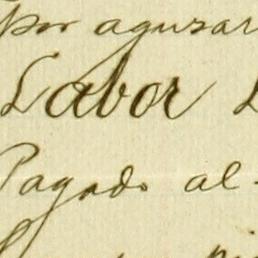 por agusar
Labor
Pagado al